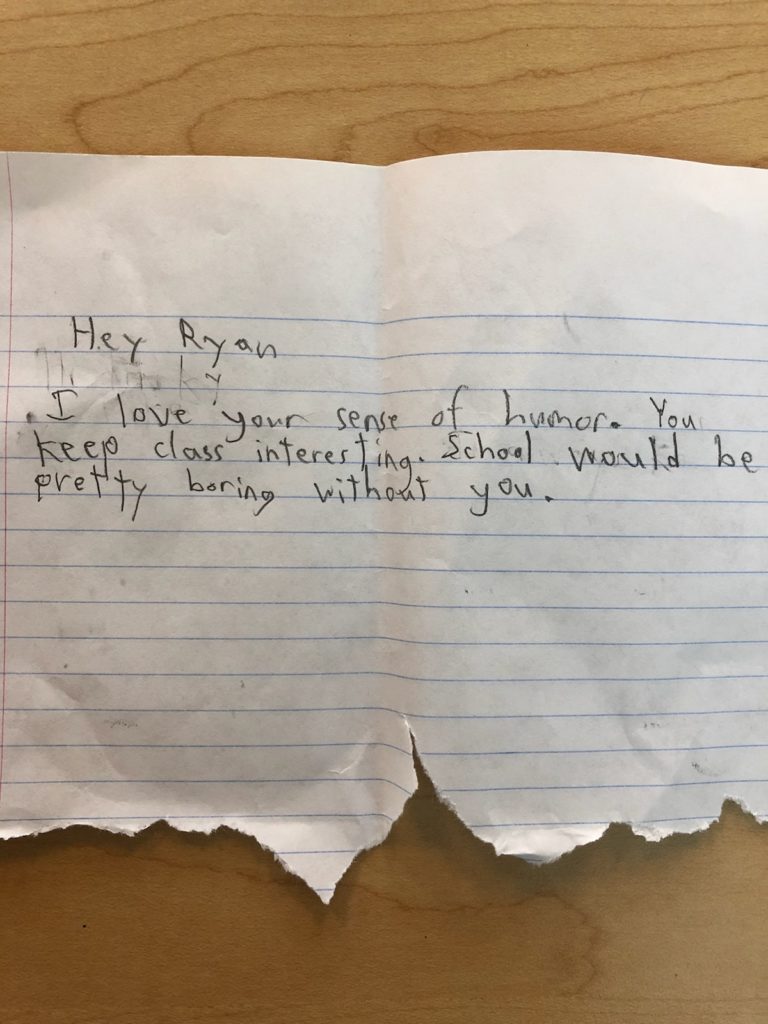 Hey Ryan
I love your sense of humor. You
keep class interesting. School would be
pretty boring without you.